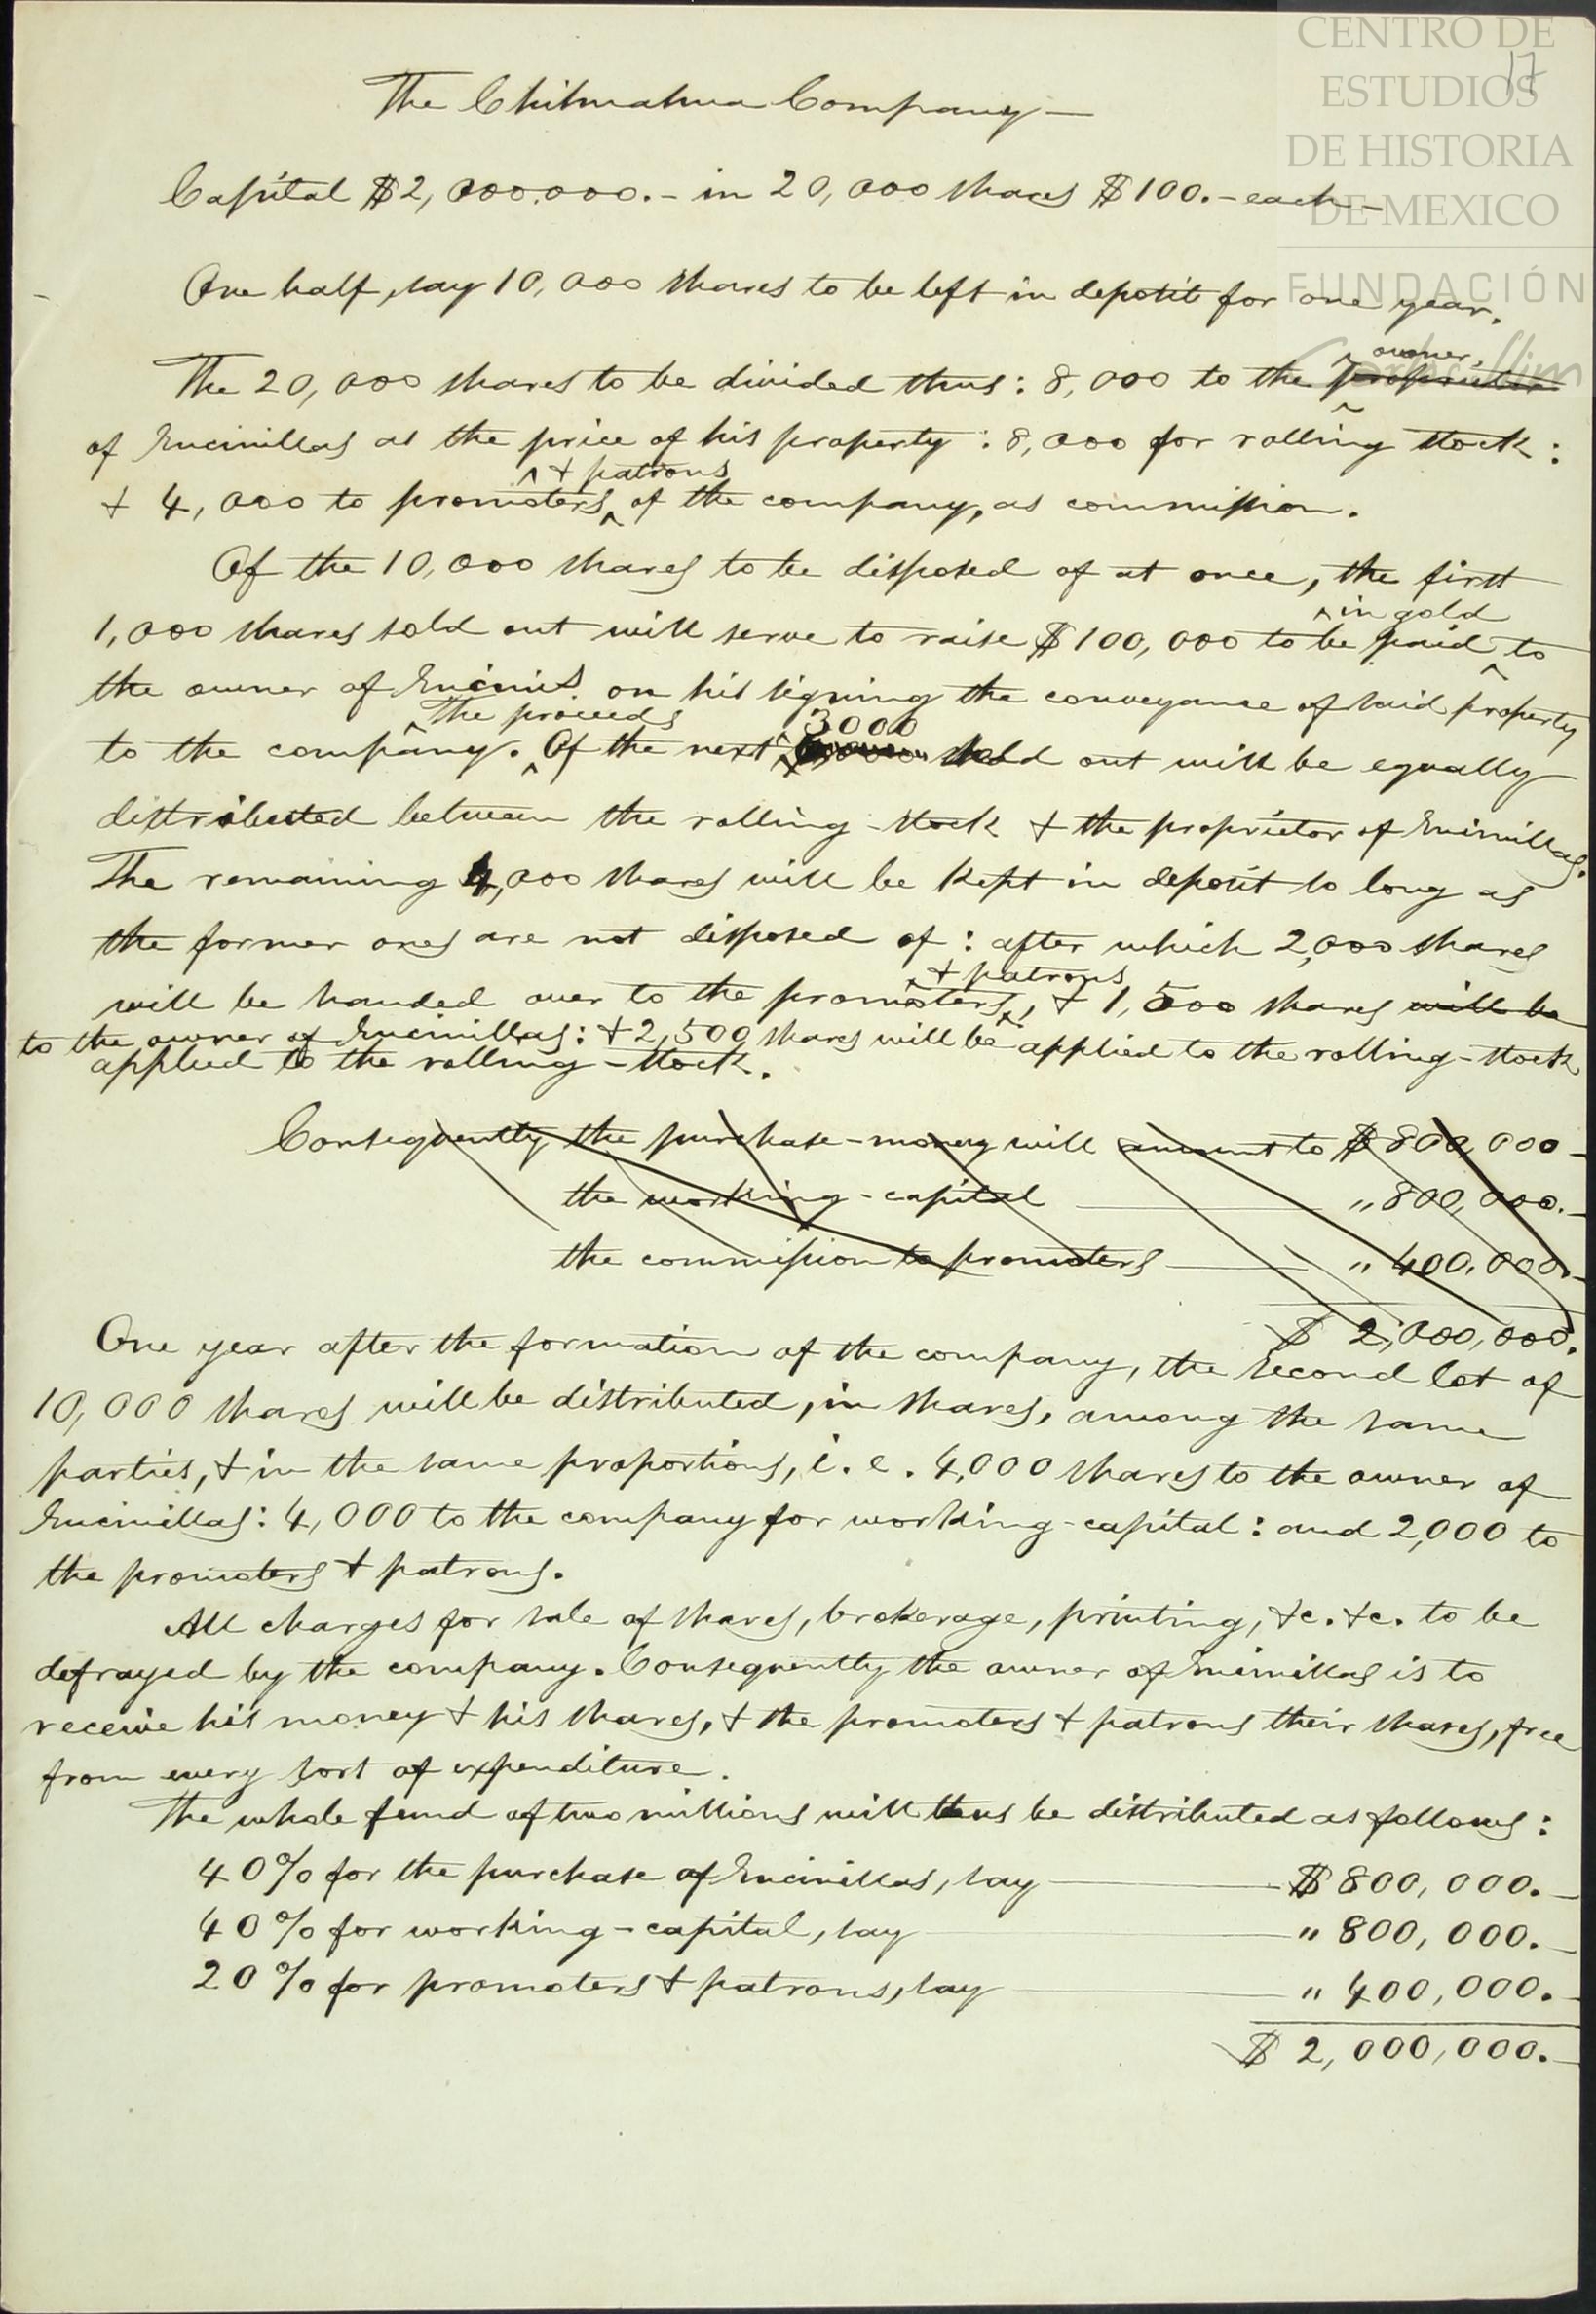 CENTRO DE
ESTUDIOS
DE HISTORIA
DE MEXICO
FUNDACIÓN
17
The Chihuahua Company—
Capital $2,000.000.- in 20,000 shares $100.- each-
One half, say 10,000 shares to be left in deposit for one year.
owner
The 20,000 shares to be divided thus: 8,000 to the proprietor
of Encinillas as the price of his property: 8,000 for rolling stock:
+ patrons
+ 4,000 to promoters of the company, as commission.
Of the 10,000 shares to be disposed of at once, the first
in gold
1,000 shares sold out will serve to raise $100,000 to be paid to
the owner of Encinis. on his signing the conveyance of said property
The proceeds 3000
to the company. Of the next sold out will be equally
distributed between the rolling-stock + the proprietor of Encinillas.
The remaining 4,000 shares will be kept in deposit so long as
the former ones are not disposed of: after which 2,000 shares
+ patrons
will be handed over to the promoters, + 1,500 shares will be
to the owner of Encinillas: + 2,500 shares will be applied to the rolling-stock
applied to the rolling-stock.
Consequently the purchase-money will amount to $800,000-
the working-capital " 800,000.-
the commission to promoters " 400,000.-
$ 2,000,000.
One year after the formation of the company, the second lot of
10,000 shares will be distributed, in shares, among the same
parties, + in the same proportions, i.e. 4,000 shares to the owner of
Encinillas: 4,000 to the company for working-capital: and 2,000 to
the promoters + patrons.
All charges for sale of shares, brokerage, printing, +c. +c. to be
defrayed by the company. Consequently the owner of Encinillas is to
receive his money + his shares, + the promoters + patrons their shares, free
from every sort of expenditure.
The whole fund of two millions will thus be distributed as follows:
40% for the purchase of Encinillas, say $800,000.-
40% for working-capital, say " 800,000.-
20% for promoters + patrons, say " 400,000.-
$ 2,000,000.-